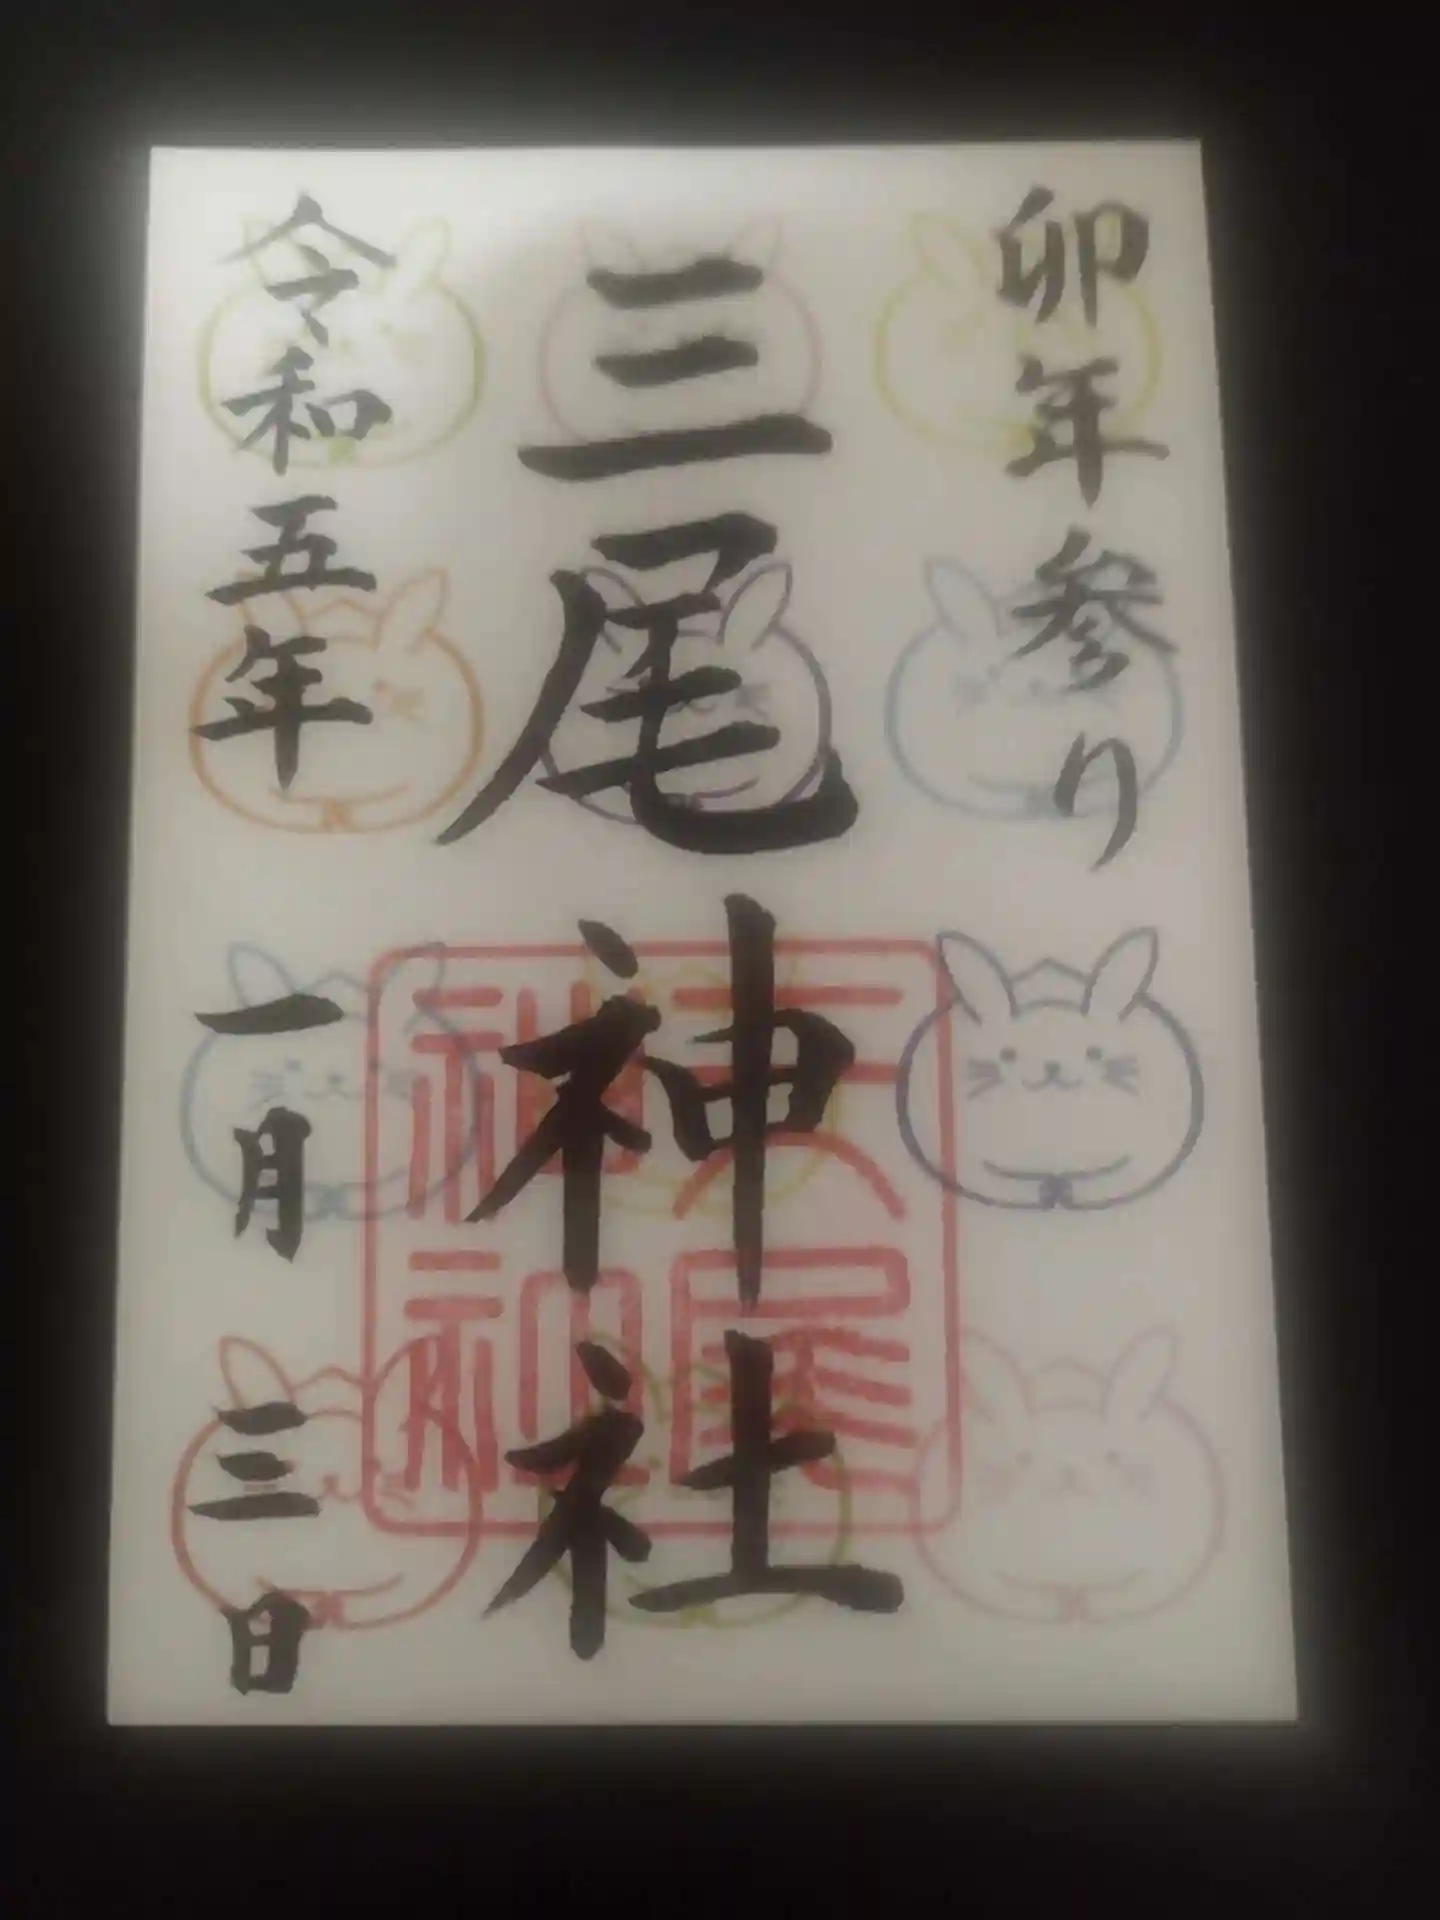 卯年参り
三尾神社
三尾神社
令和五年一月三日